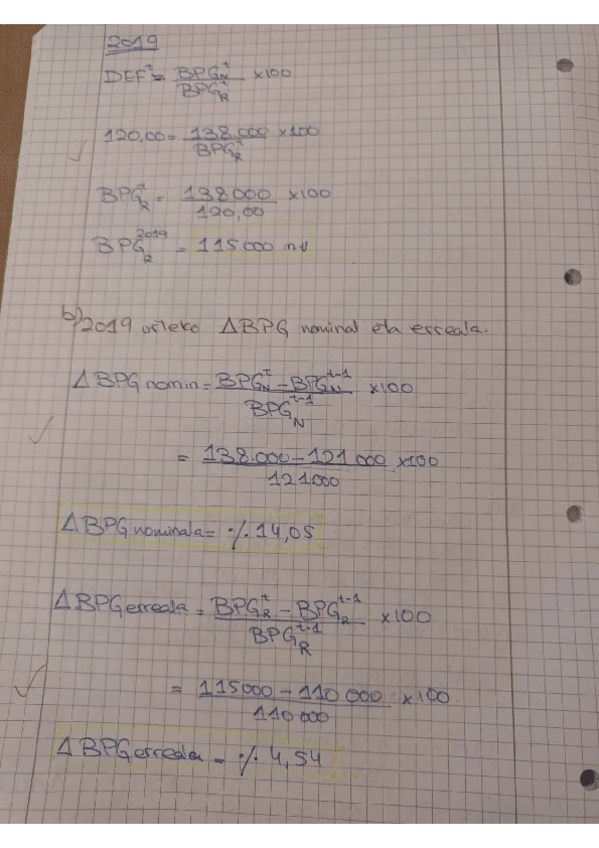 2019
DEF^t = BPG_N^t / BPG_R^t x100
120,00 = 138.000 / BPG_R^t x100
BPG_R^t = 138000 / 120,00 x100
BPG_R^2019 = 115000 mu
b) 2019 urteko ΔBPG nominal eta erreala.
ΔBPG nomin = BPG_N^t - BPG_N^t-1 / BPG_N^t-1 x100
= 138.000 - 121 000 / 121000 x100
ΔBPG nominala = ·/. 14,05
ΔBPG erreala = BPG_R^t - BPG_R^t-1 / BPG_R^t-1 x100
= 115000 - 110 000 / 110 000 x 100
ΔBPG erreala = ·/. 4,54